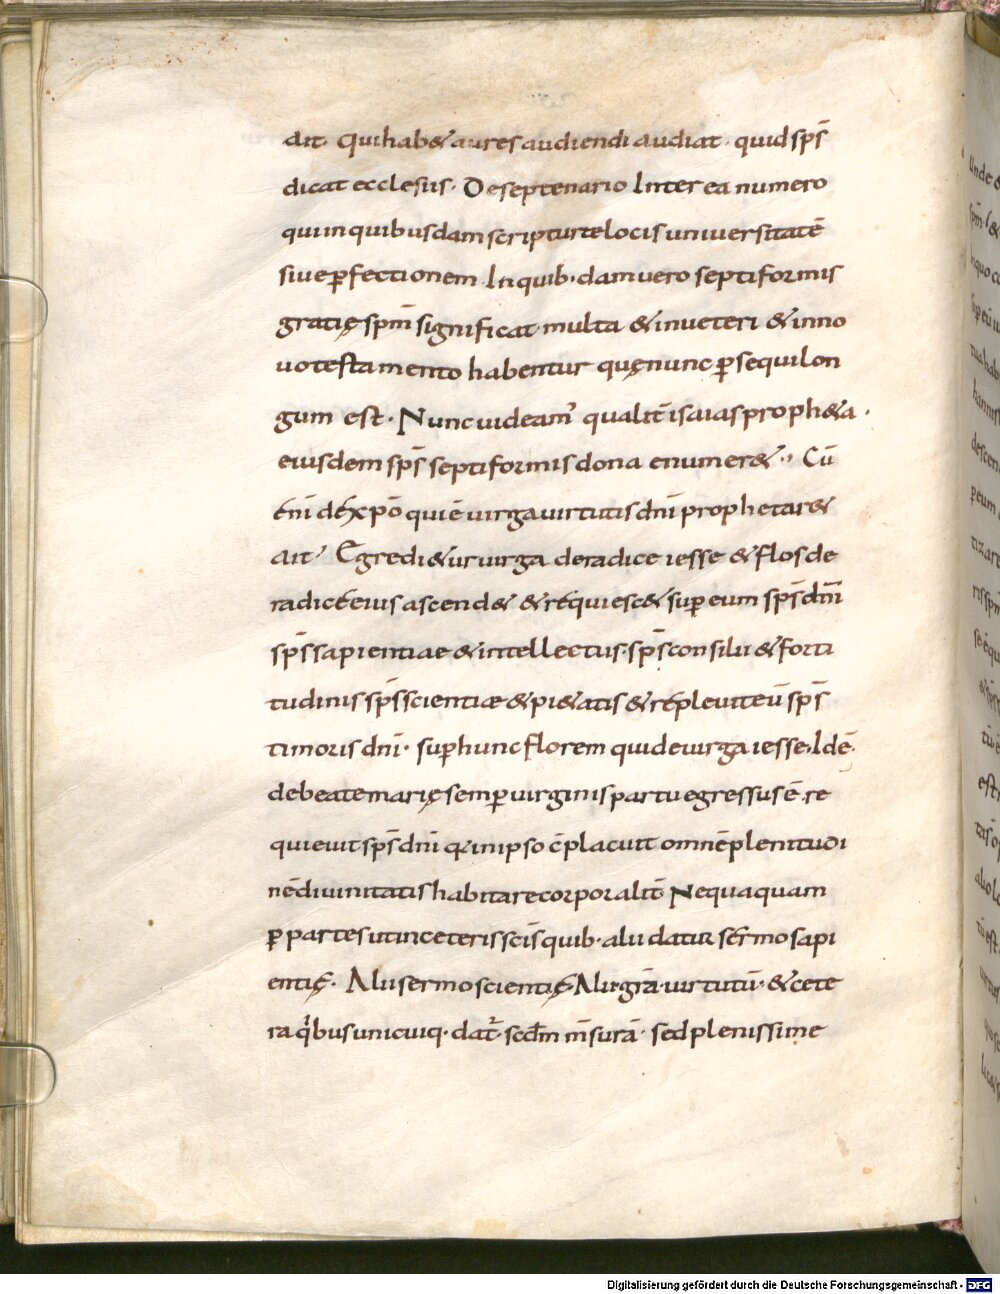 dit. Qui hab& aures audiendi audiat. quid sp̄s
dicat ecclesiis. De septenario Inter ea numero
qui in quibusdam scripturae locis uniuersitatē
siue ꝑfectionem. In quib· dam uero septiformis
gratię sp̄m significat multa & in ueteri & in no
uo testamento habentur quę nunc ꝑsequi lon
gum est. Nunc uideam᾿ qualit̄ isaias proph&a.
eiusdem sp̄s septiformis dona enumer&. Cū
eni de xp̄o qui ē uirga uirtutis dn̄i prophetar&
ait Egredi&ur uirga de radice iesse & flos de
radice eius ascend& & requiesc& suꝑ eum sp̄s dn̄i
sp̄s sapientiae & intellectus. sp̄s consilii & forti
tudinis sp̄s scientiæ & pi&atis & repleuit eū sp̄s
timoris dn̄i. suꝑ hunc florem qui de uirga iesse. Id ē.
de beate marię semꝑ uirginis partu egressus ē. re
quieuit sp̄s dn̄i qr in ipso c̄placuit omnē plenitudi
nē diuinitatis habitare corporalit̄. Nequaquam
ꝑ partes ut in ceteris sc̄is quib· alii datur sermo sapi
entię. Alii sermo scientię Alii grā uirtutū. & cete
ra qͥbus unicuiq· dat᾿. scdm m̄surā. sed plenissime
Digitalisierung gefördert durch die Deutsche Forschungsgemeinschaft - DFG